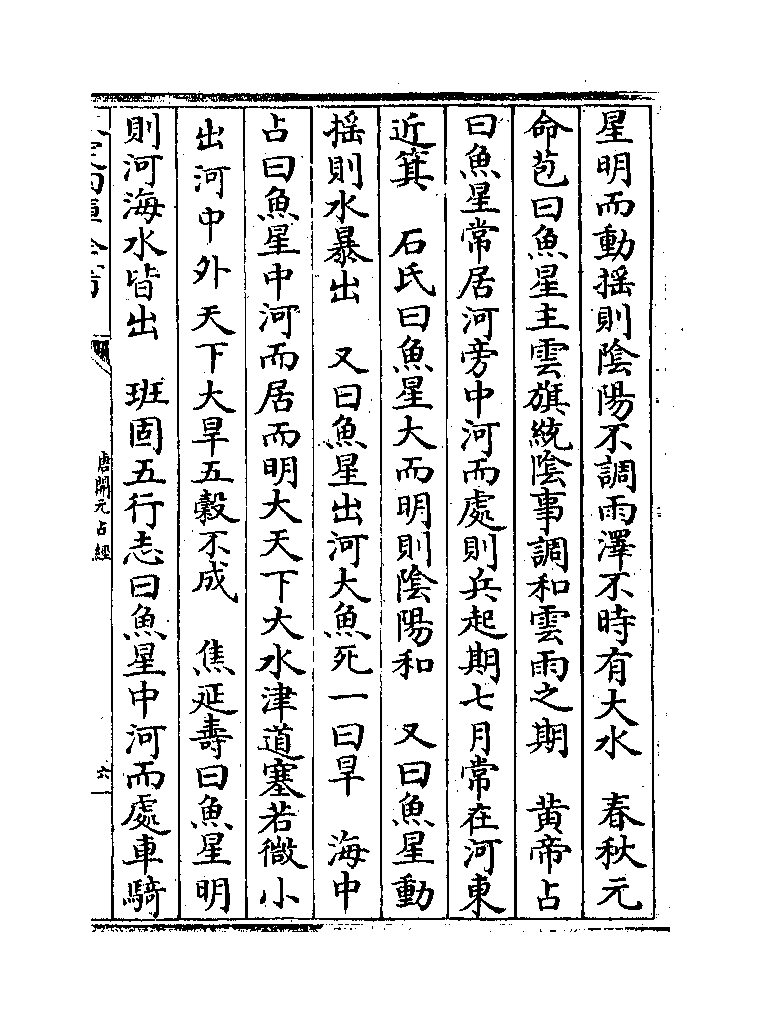 星明而動揺則隂陽不調雨澤不時有大水　春秋元
命苞曰魚星主雲旗統隂事調和雲雨之期　黄帝占
曰魚星常居河旁中河而處則兵起期七月常在河東
近箕　石氏曰魚星大而明則隂陽和　又曰魚星動
揺則水暴出　又曰魚星出河大魚死一曰旱　海中
占曰魚星中河而居而明大天下大水津道塞若微小
出河中外天下大旱五穀不成　焦延壽曰魚星明
則河海水皆出　班固五行志曰魚星中河而處車騎
唐開元占經
六一